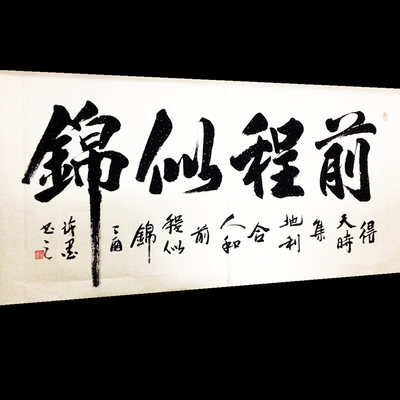 前程似錦
得天時集地利合人和前程似錦丁酉
許墨書之